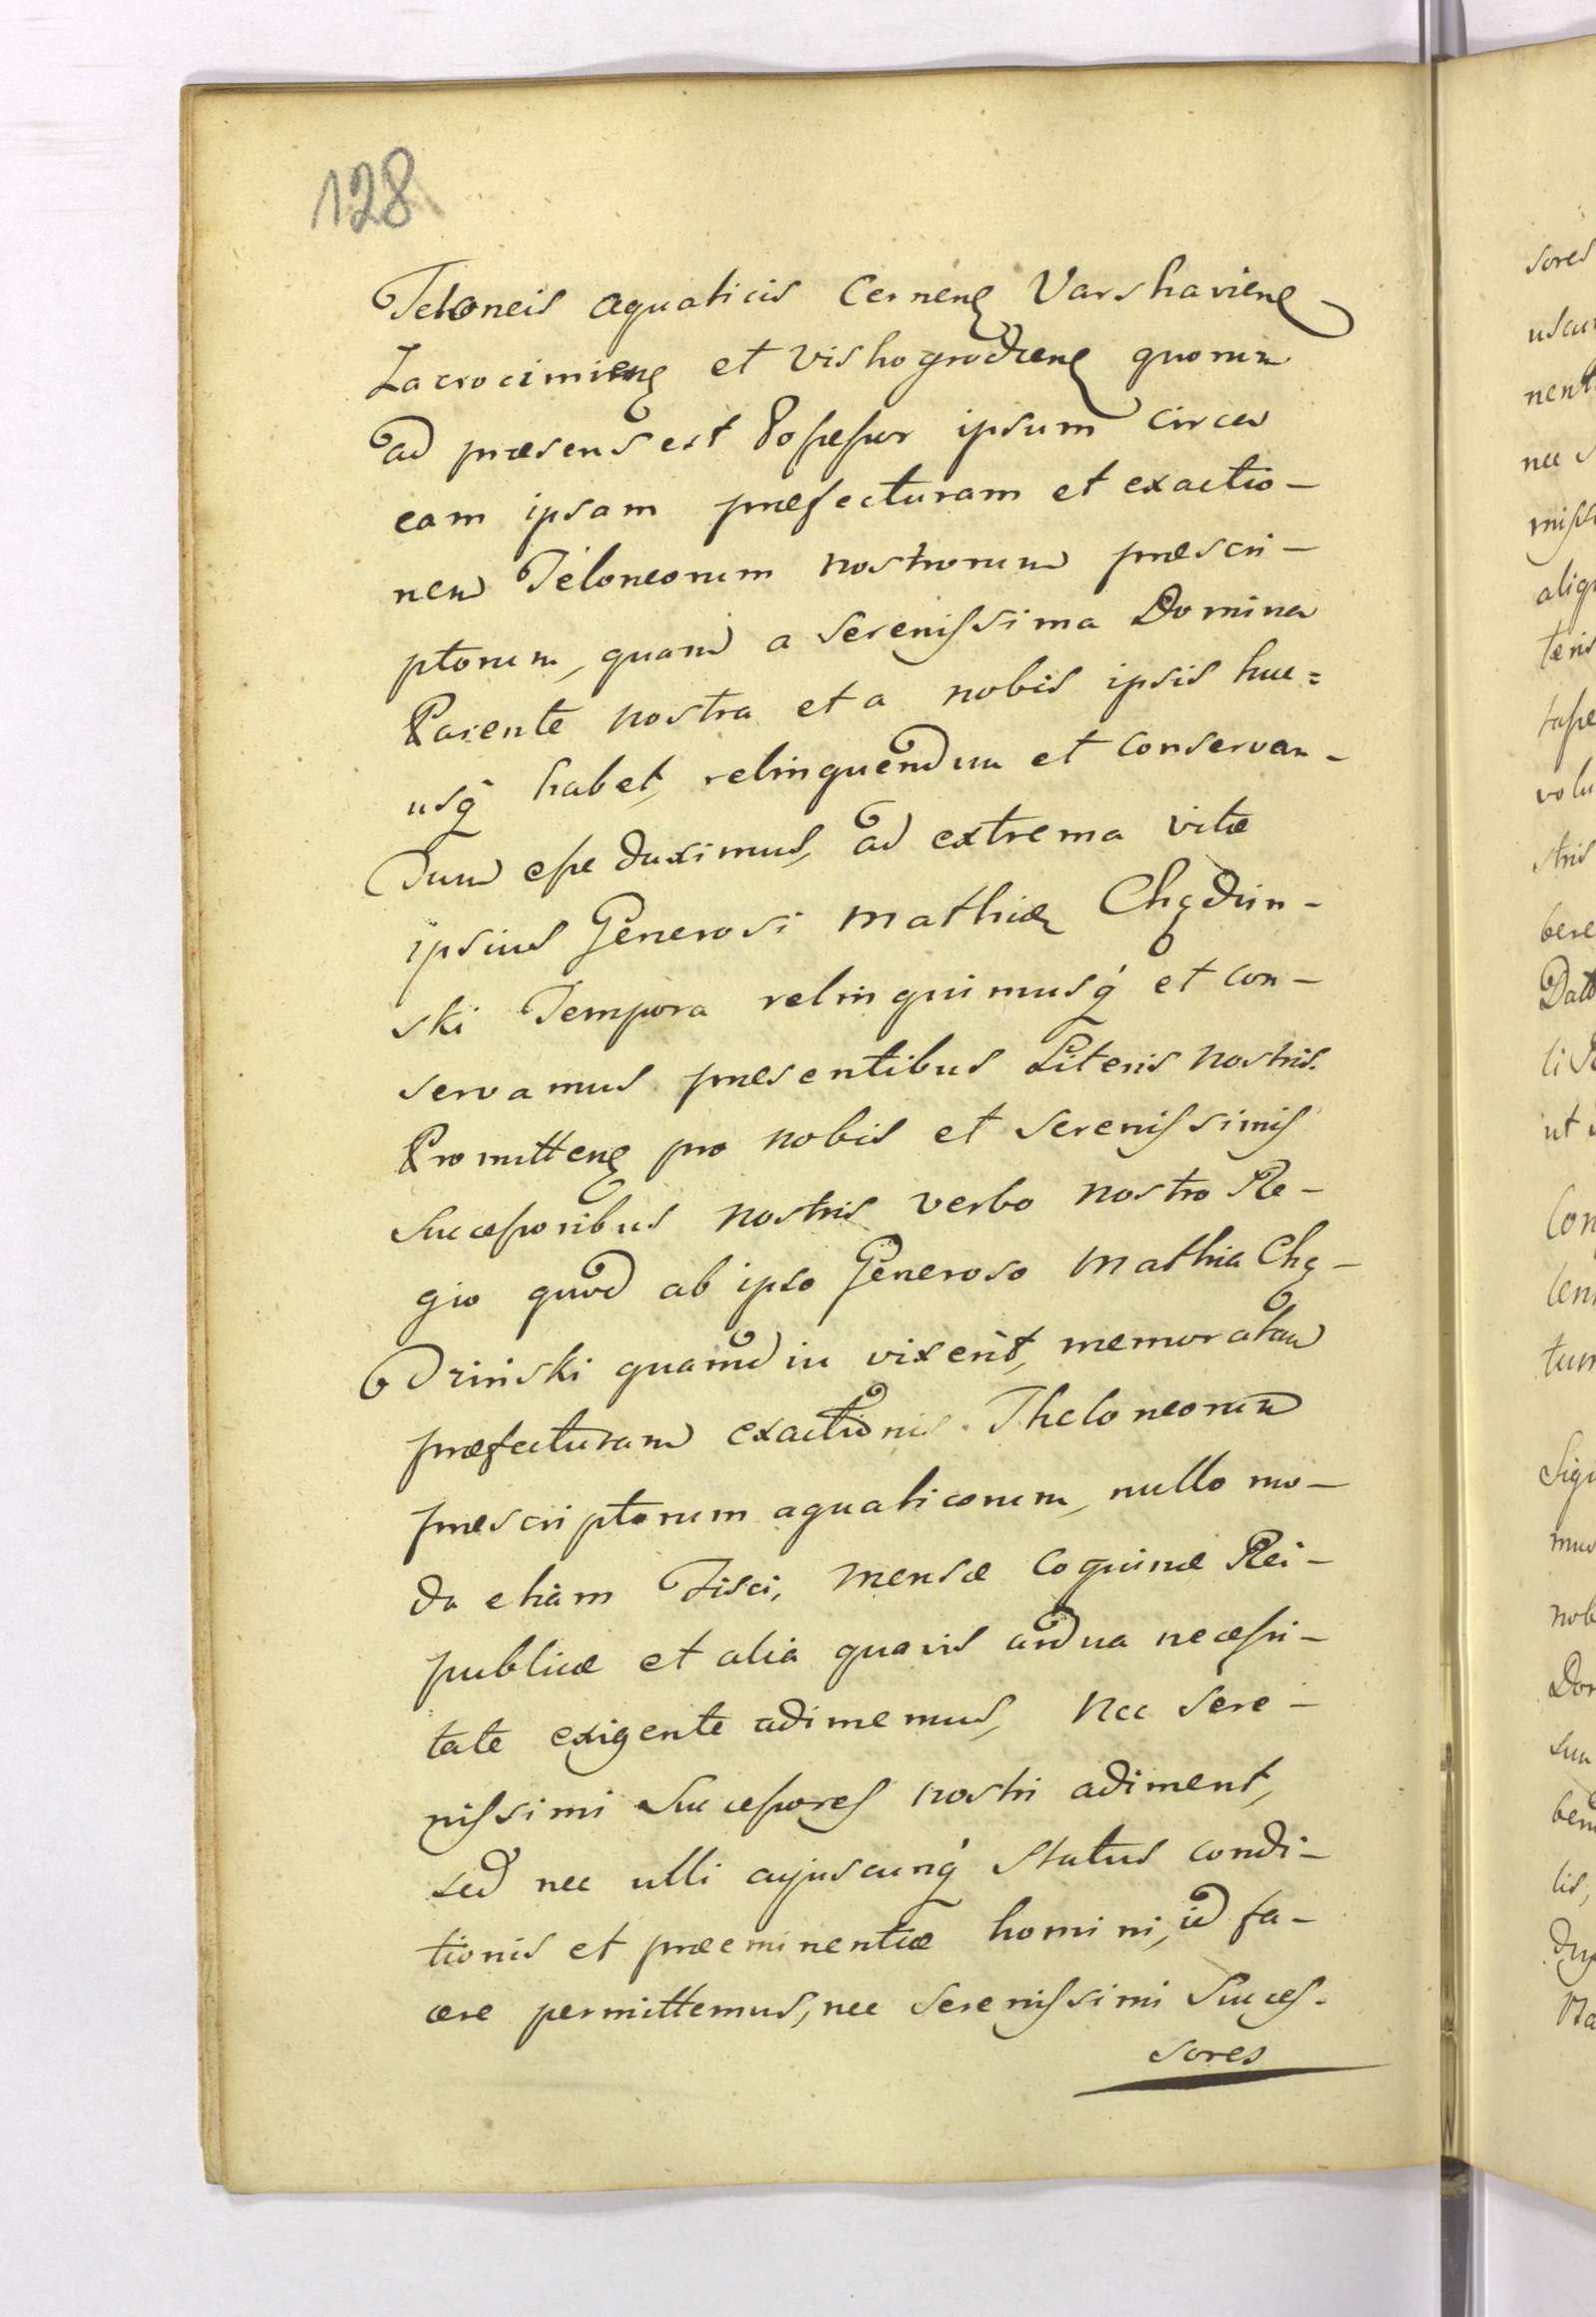 128
Teloneis aquaticis Cernenș Varshavienș
Zacrociminenș et Vishogrodienș quorum
ad præsens est Possessor ipsum circa
eam ipsam præfecturam et exactio-
nem Teloneorum nostrorum præscri-
ptorum, quam a Serenissima Domina
Parente nostra et a nobis ipsis huc=
usq́ habet, relinquendum et conservan-
dum esse duximus, ad extrema vitæ
ipsius Generosi Mathiæ Chądzin-
ski Tempora relinquimusq́ et con-
servamus præsentibus Literis nostris.
Promittenș pro nobis et Serenissimis
Successoribus nostris verbo nostro Re-
gio quod ab ipso Generoso Mathia Chą-
dzinski quamdiu vixerit, memoratam
præfecturam exactionis Theloneorum
præscriptorum aquaticorum, nullo mo-
do etiam Fisci, Mensæ Coquinæ Rei-
publicæ et alia quavis ardua necessi-
tate exigente adimemus, nec Sere-
nissimi Successores nostri adiment,
sed nec ulli cujuscunq́ status condi-
tionis et præeminentiæ homini, id fa-
cere permittemus, nec Serenissimi Succes-
sores
sores
nec
bere
ut
tum
lis,